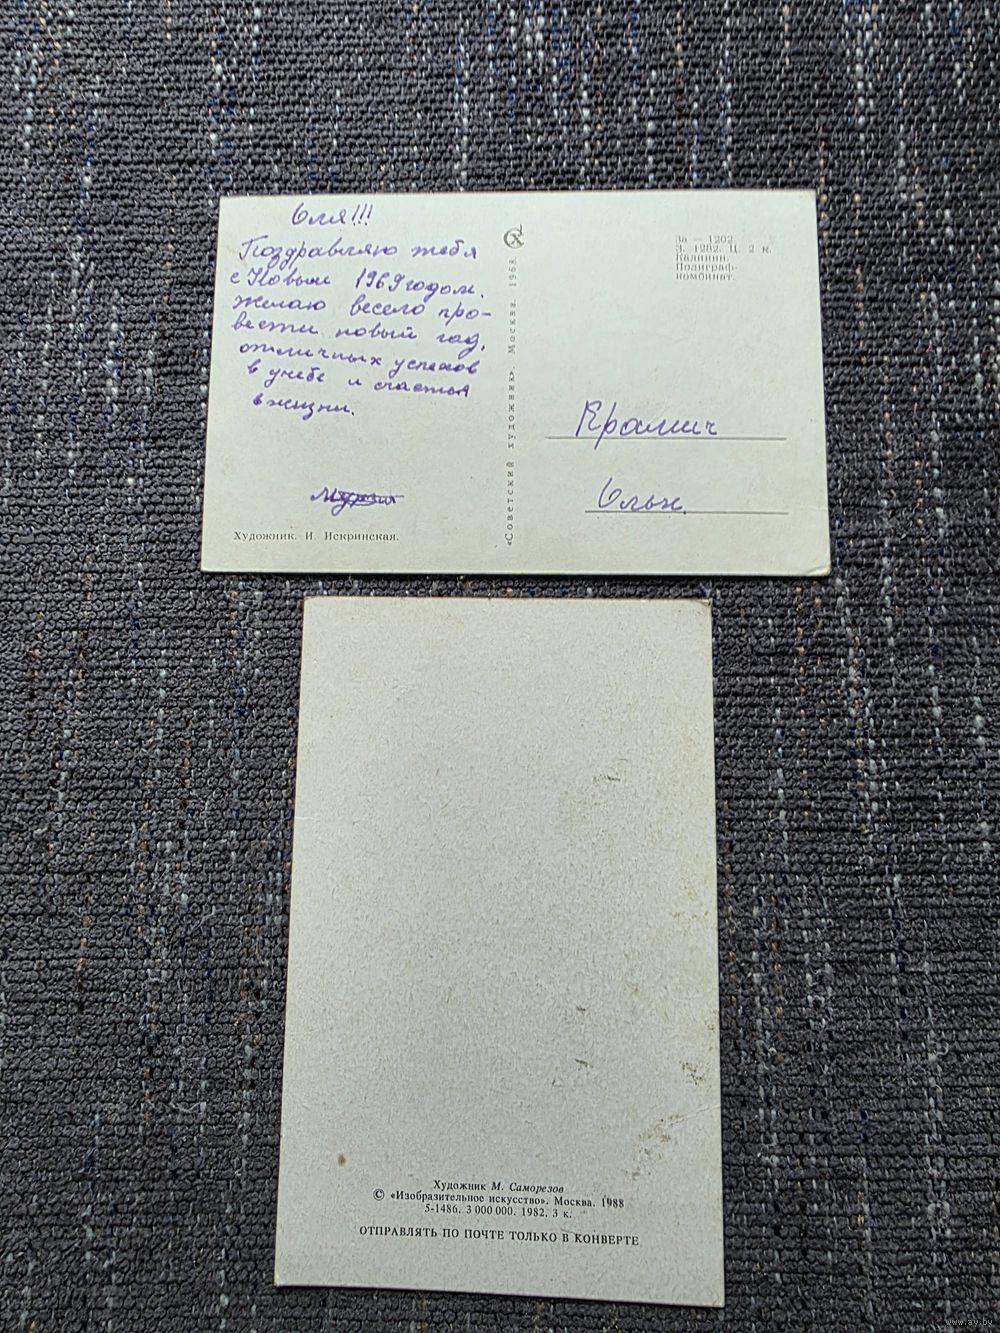 Оля!!!
Поздравляю тебя
с Новым 1969 годом.
Желаю весело про-
вести новый год,
отличных успехов
в учебе и счастья
в жизни.
Художник И. Искринская.
«Советский художник». Москва. 1968.
За — 1202
З. 1282. Ц. 2 к.
Калинин.
Полиграф-
комбинат.
Крамич
Ольн.
Художник М. Саморезов
© «Изобразительное искусство». Москва. 1988
5-1486. 3 000 000. 1982. 3 к.
ОТПРАВЛЯТЬ ПО ПОЧТЕ ТОЛЬКО В КОНВЕРТЕ
www.ay.by